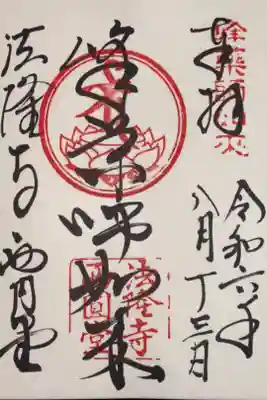 奉拝
令和六年
八月十三日
峰薬師如来
法隆寺
西圓堂
法隆寺 西円堂